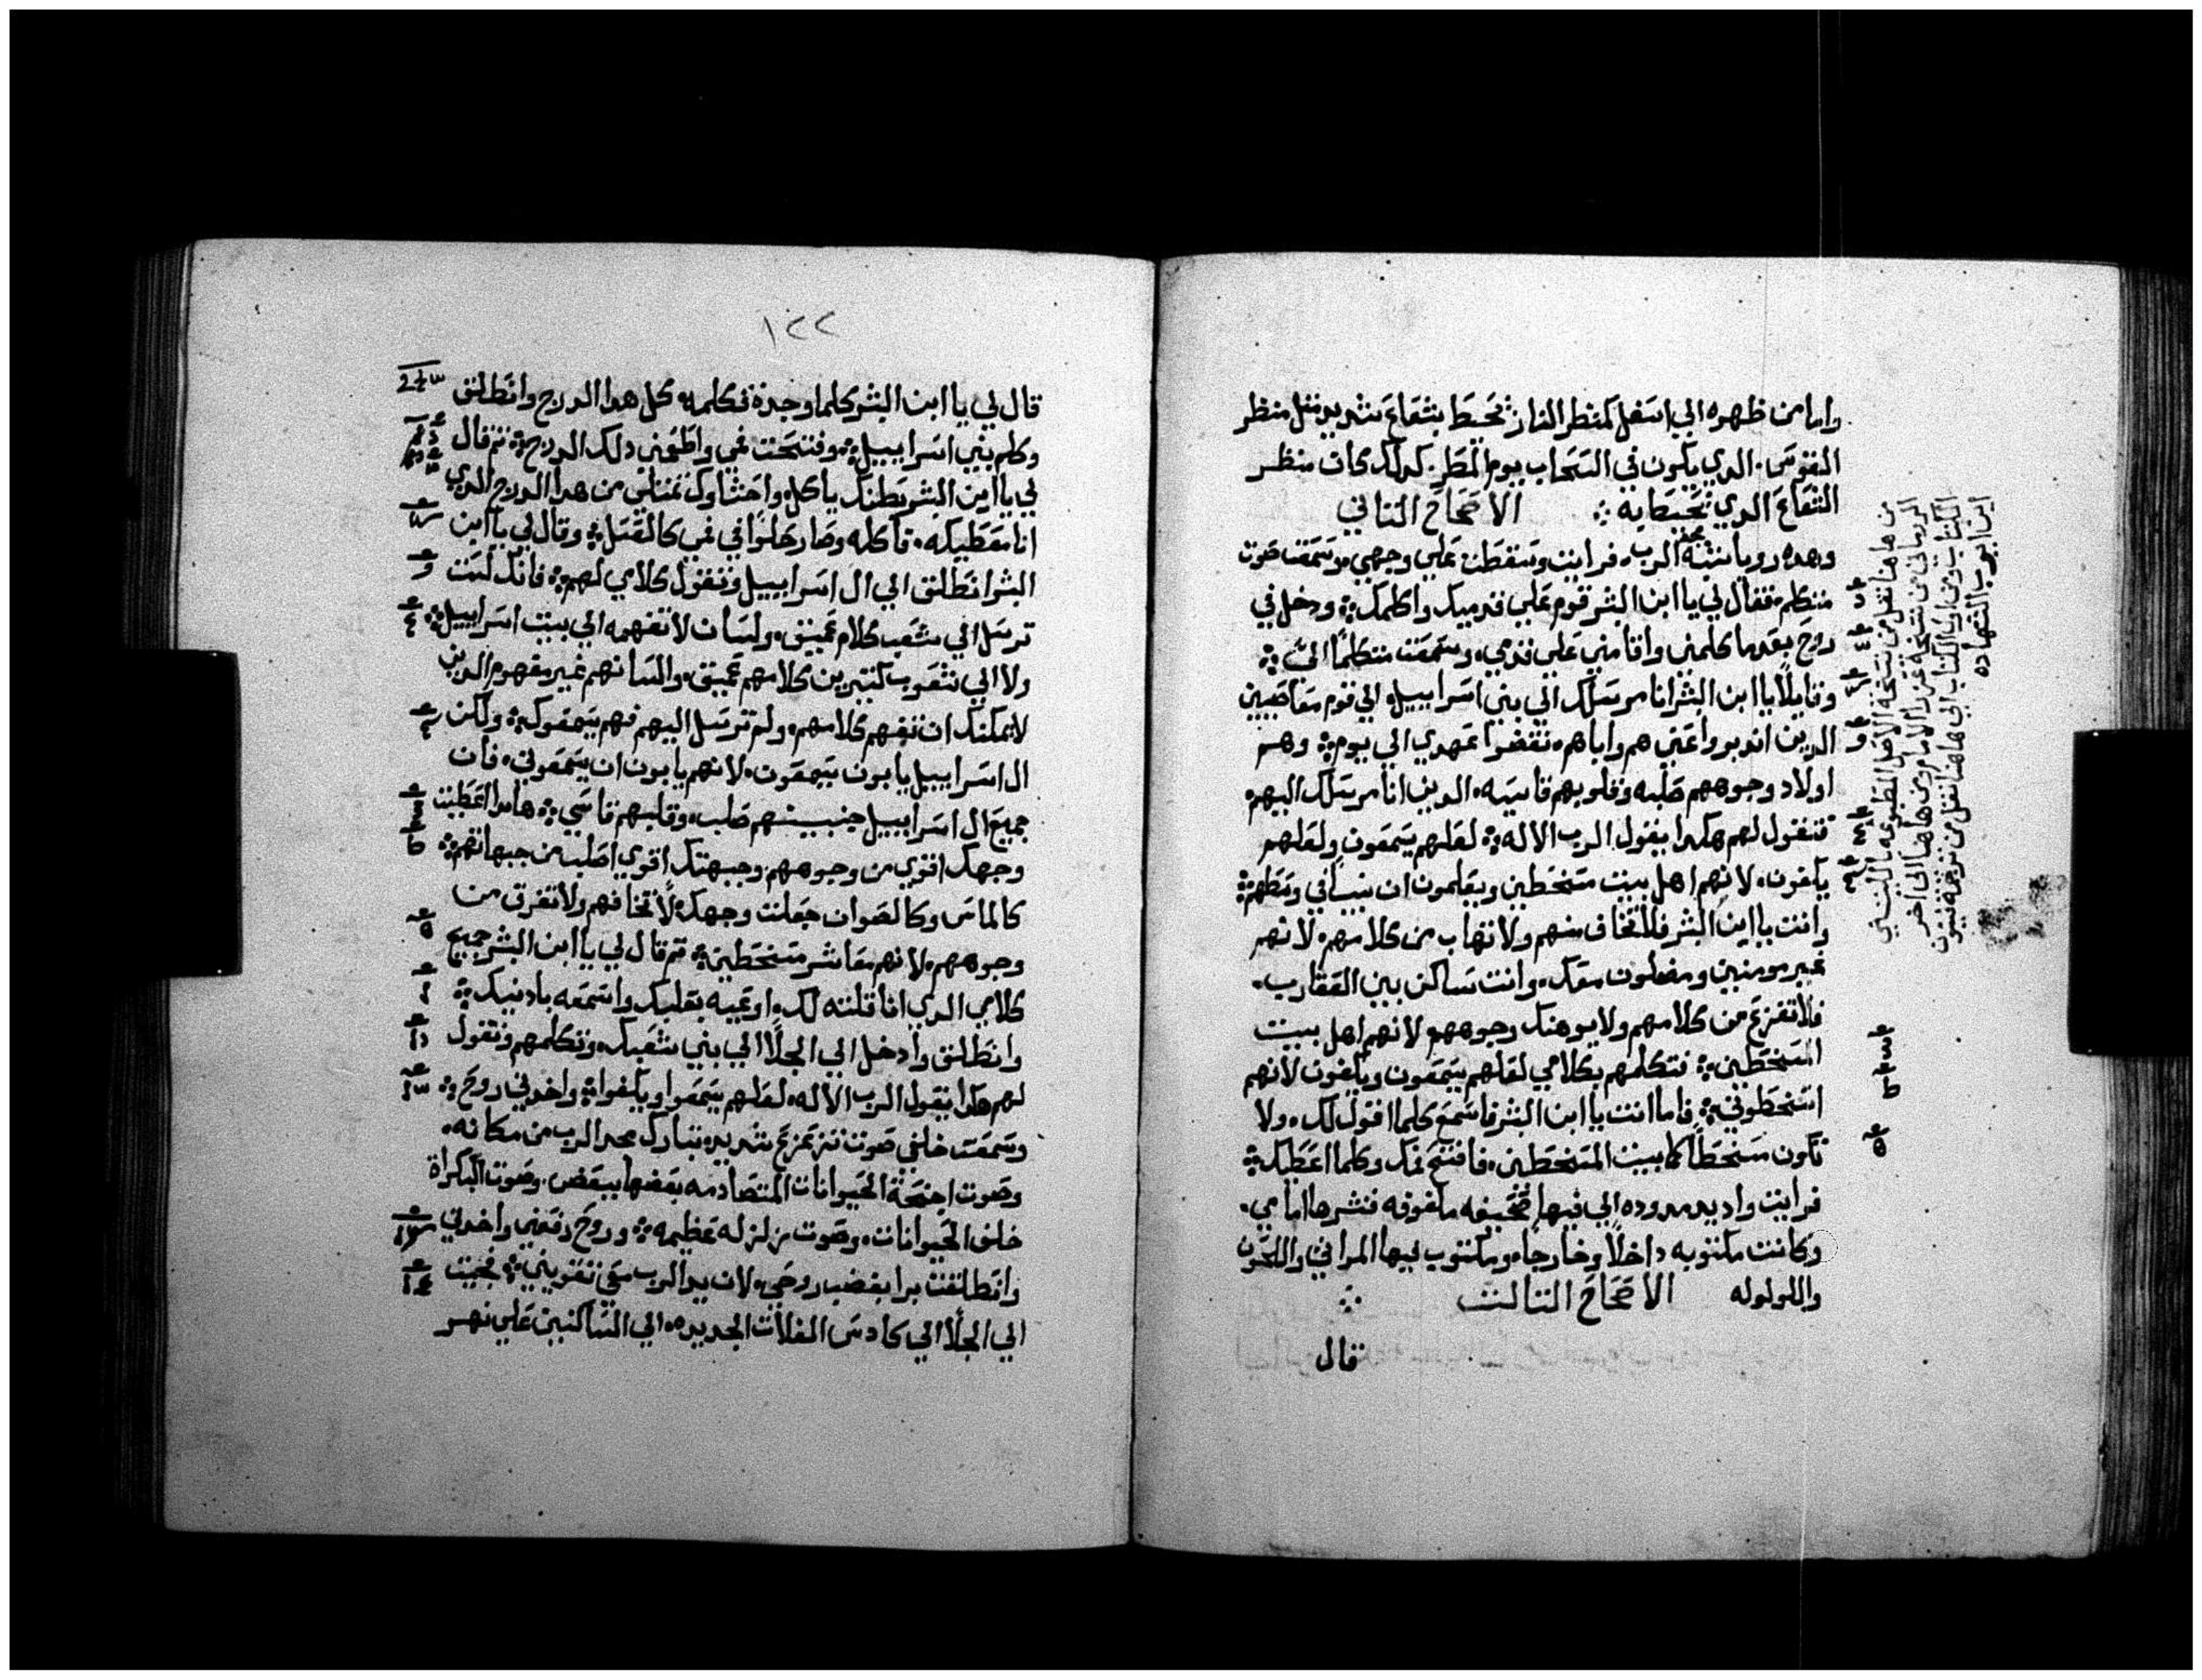 واما من ظهره الي اسفل كمنظر النار تحيط بشعاع شديد مثل منظر
القوس الدي يكون في السحاب يوم المطر كدلك كان منظر
الشعاع الدي تحيط به ⁘ الاصحاح التاني
وهده رويا شبه مجد الرب فرايت وسقطت علي وجهي وسمعت صوت
متكلم فقال لي يا ابن البشر قوم علي قدميك واكلمك ⁘ ودخل في
روح بعدما كلمني واقامني علي قدمي وسمعت متكلما الي ⁘
وقايلا يا ابن البشر انا مرسلك الي بني اسراييل الي قوم معاصيين
الدين اندبروا عني هم واباهم نقضوا عهدي الي يوم ⁘ وهم
اولاد وجوههم صلبه وقلوبهم قاسيه الدين انا مرسلك اليهم
فتقول لهم هكدا يقول الرب الاله ⁘ لعلهم يسمعون ولعلهم
يكفون لانهم اهل بيت متسخطين ويعلمون ان نبيا في وسطهم ⁘
وانت يا ابن البشر فلا تخاف منهم ولا تهاب من كلامهم لانهم
غير مومنين ومضلون معك وانت ساكن بين العقارب
فلا تفزع من كلامهم ولا يوهنك وجوههم لانهم اهل بيت
المسخطين ⁘ فتكلمهم بكلامي لعلهم يسمعون ويكفون لانهم
اسخطوني ⁘ فاما انت يا ابن البشر فاسمع كلما اقول لك ولا
تكون مسخطا كما بيت المتسخطين فافتح فمك وكلما اعطيك ⁘
فرايت واد يد ممدوده الي فيها صحيفه ملفوفه فنشرها امامي
وكانت مكتوبه داخلا وخارجا ومكتوب فيها المراثي واللحون
واللولوله الاصحاح التالت ⁘
قال
من هاهنا نقل من نسخة الاصل المطبوعه بالليتيني
الكتاب ومن اول الكتاب الي هاهنا نقل من ترجمه
ابن ايوب الشهاده
١٢٢
قال لي يا ابن البشر كلما وجدته فكلمه كل هدا الدرج وانطلق
وكلم بني اسراييل ⁘ وفتحت فمي واطعمني دلك الدرج ⁘ تم قال
لي يا ابن البشر بطنك ياكل واحشاوك تمتلي من هدا الدرج الدي
انا معطيكه فاكله وصار حلوا في فمي كالعسل ⁘ وقال لي يا ابن
البشر انطلق الي ال اسراييل وتقول كلامي لهم ⁘ فانك لست
ترسل الي شعب كلام عميق ولسان لا تفهمه الي بيت اسراييل ⁘
ولا الي شعوب كتيرين كلامهم عميق والسانهم غير مفهوم الدين
لا يمكنك ان تفهم كلامهم ولم ترسل اليهم فهم يسمعوك ⁘ ولكن
ال اسراييل يابون يسمعون لانهم يابون ان يسمعوني فان
جميع ال اسراييل جبينهم صلب وقلبهم قاسي ⁘ هاهودا اعطيت
وجهك اقوي من وجوههم وجبهتك اقوي اصلب من جبهاتهم ⁘
كالماس وكالصوان جعلت وجهك لا تخافهم ولا تفرق من
وجوههم لانهم معاشر متسخطين ⁘ تم قال لي يا ابن البشر جميع
كلامي الدي انا قلته لك اوعيه بقلبك واسمعه بادنيك ⁘
وانطلق وادخل الي الجلا الي بني شعبك وتكلمهم وتقول
لهم هكدا يقول الرب الاله لعلهم يسمعوا ويكفوا ⁘ واخدني روح ⁘
وسمعت خلفي صوت تزعزع شديد تبارك مجد الرب من مكانه
وصوت اجنحة الحيوانات المتصادمه بعضها ببعض وصوت البكراة
خلف الحيوانات وصوت زلزله عظيمه ⁘ وروح رفعني واخدني
وانطلقت برا بغضب روحي لان يد الرب معي تقويني ⁘ فجيت
الي الجلا الي كادس الغلات الجديده الي الساكنين علي نهر